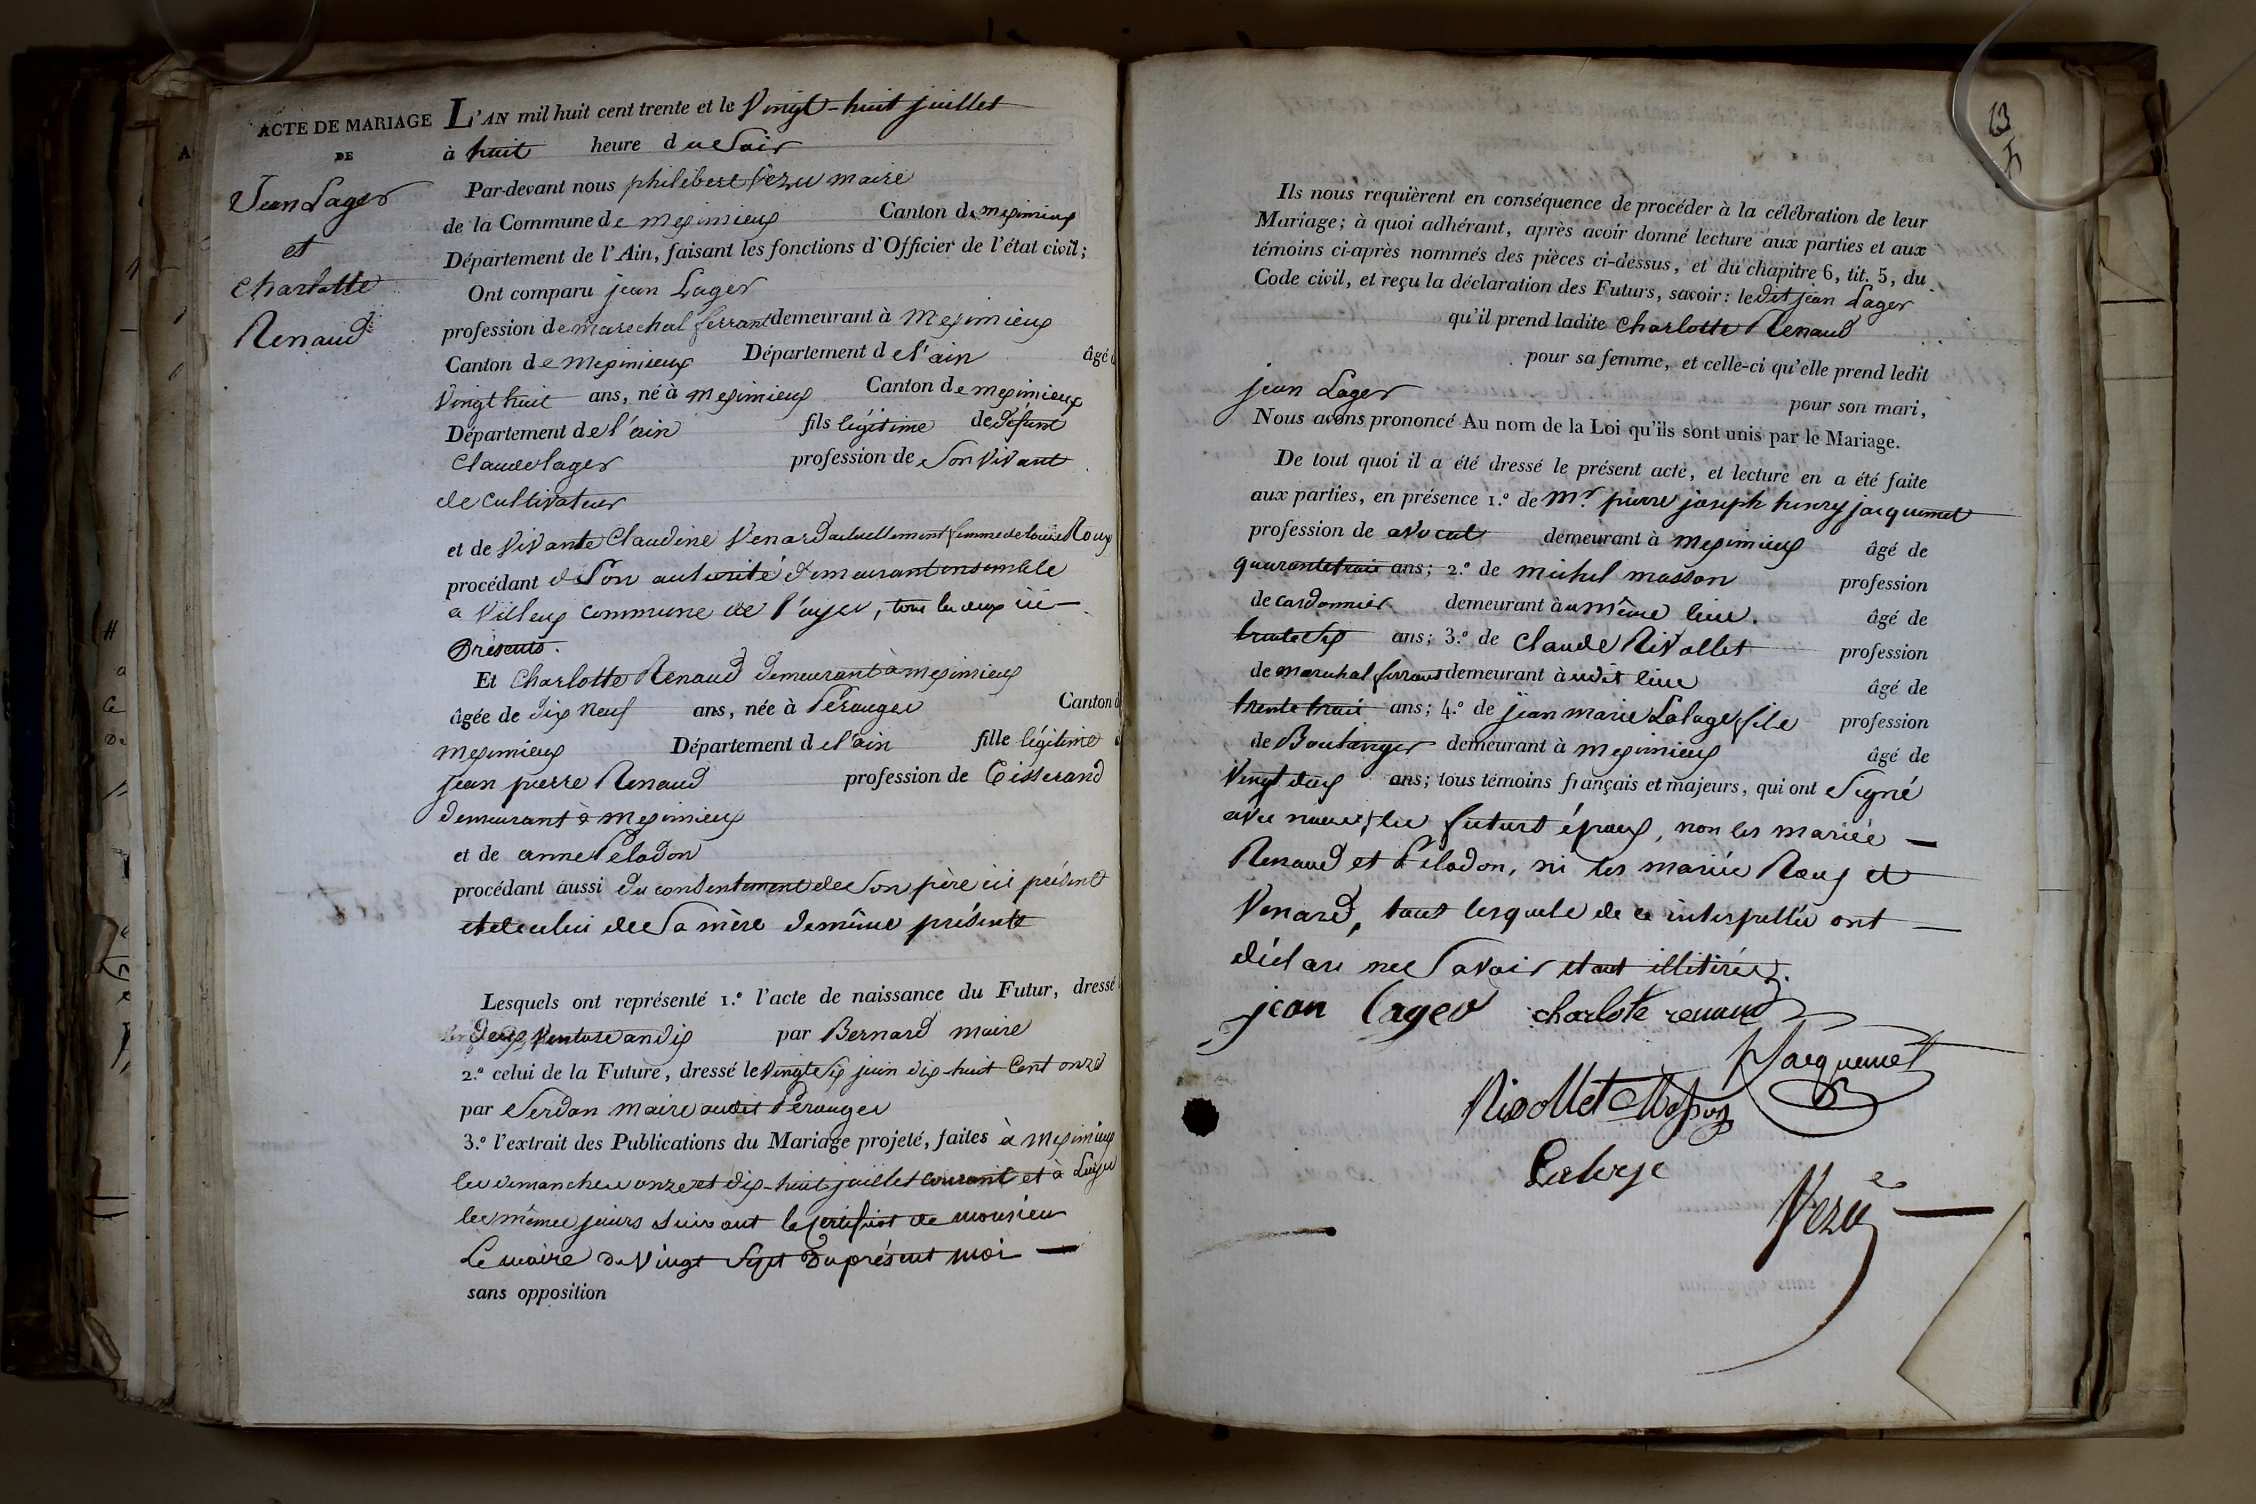 ACTE DE MARIAGE
DE
Jean Lager
et
Charlotte
Renaud
L'AN mil huit cent trente et le Vingt-huit juillet
à huit heure du Soir
Par-devant nous philibert Vezu maire
de la Commune de meximieux Canton de meximieux
Département de l'Ain, faisant les fonctions d'Officier de l'état civil;
Ont comparu jean Lager
profession de marechal ferrant demeurant à meximieux
Canton de meximieux Département de l'ain âgé d
Vingt huit ans, né à meximieux Canton de meximieux
Département de l'ain fils légitime de défunt
Claude Lager profession de Son Vivant
de cultivateur
et de Vivante Claudine Venard actuellement femme de Louis Roux
procédant de Son autorité demeurant ensemble
a Villeux commune de Loyes, tous les deux ici
Présents.
Et Charlotte Renaud demeurant à meximieux
âgée de dix Neuf ans, née à Pérouges Canton d
meximieux Département de l'ain fille légitime d
jean pierre Renaud profession de Tisserand
demeurant à meximieux
et de anne Peladon
procédant aussi du consentement de Son père ici présent
et de celui de Sa mère de même présente
Lesquels ont représenté 1.º l'acte de naissance du Futur, dressé
deux Ventose an dix par Bernard maire
2.º celui de la Future, dressé le Vingt Six juin dix-huit Cent onze
par Serdan maire audit Pérouges
3.º l'extrait des Publications du Mariage projeté, faites à meximieux
les dimanches onze et dix-huit juillet courant et à Loyes
les mêmes jours Suivant le certificat de monsieur
Le maire du Vingt Sept du présent mois
sans opposition
Ils nous requièrent en conséquence de procéder à la célébration de leur
Mariage; à quoi adhérant, après avoir donné lecture aux parties et aux
témoins ci-après nommés des pièces ci-dessus, et du chapitre 6, tit. 5, du
Code civil, et reçu la déclaration des Futurs, savoir: ledit jean Lager
qu'il prend ladite Charlotte Renaud
pour sa femme, et celle-ci qu'elle prend ledit
jean Lager pour son mari,
Nous avons prononcé Au nom de la Loi qu'ils sont unis par le Mariage.
De tout quoi il a été dressé le présent acte, et lecture en a été faite
aux parties, en présence 1.º de Mr. pierre joseph henry jacquemet
profession de avocat demeurant à meximieux âgé de
quarante trois ans; 2.º de michel masson profession
de cordonnier demeurant au même lieu. âgé de
trente Six ans; 3.º de Claude Rivollet profession
de marechal ferrant demeurant audit lieu âgé de
trente trois ans; 4.º de jean marie Laloge fils profession
de Boulanger demeurant à meximieux âgé de
Vingt deux ans; tous témoins français et majeurs, qui ont Signé
avec nous, les futurs époux, non les mariés
Renaud et Peladon, ni les mariés Roux et
Venard, tous lesquels de ce interpellés ont
déclaré ne Savoir etant illitirés.
jean lager charlote renaud
Jacquemet
Rivollet Masson
Laloge
Vezu